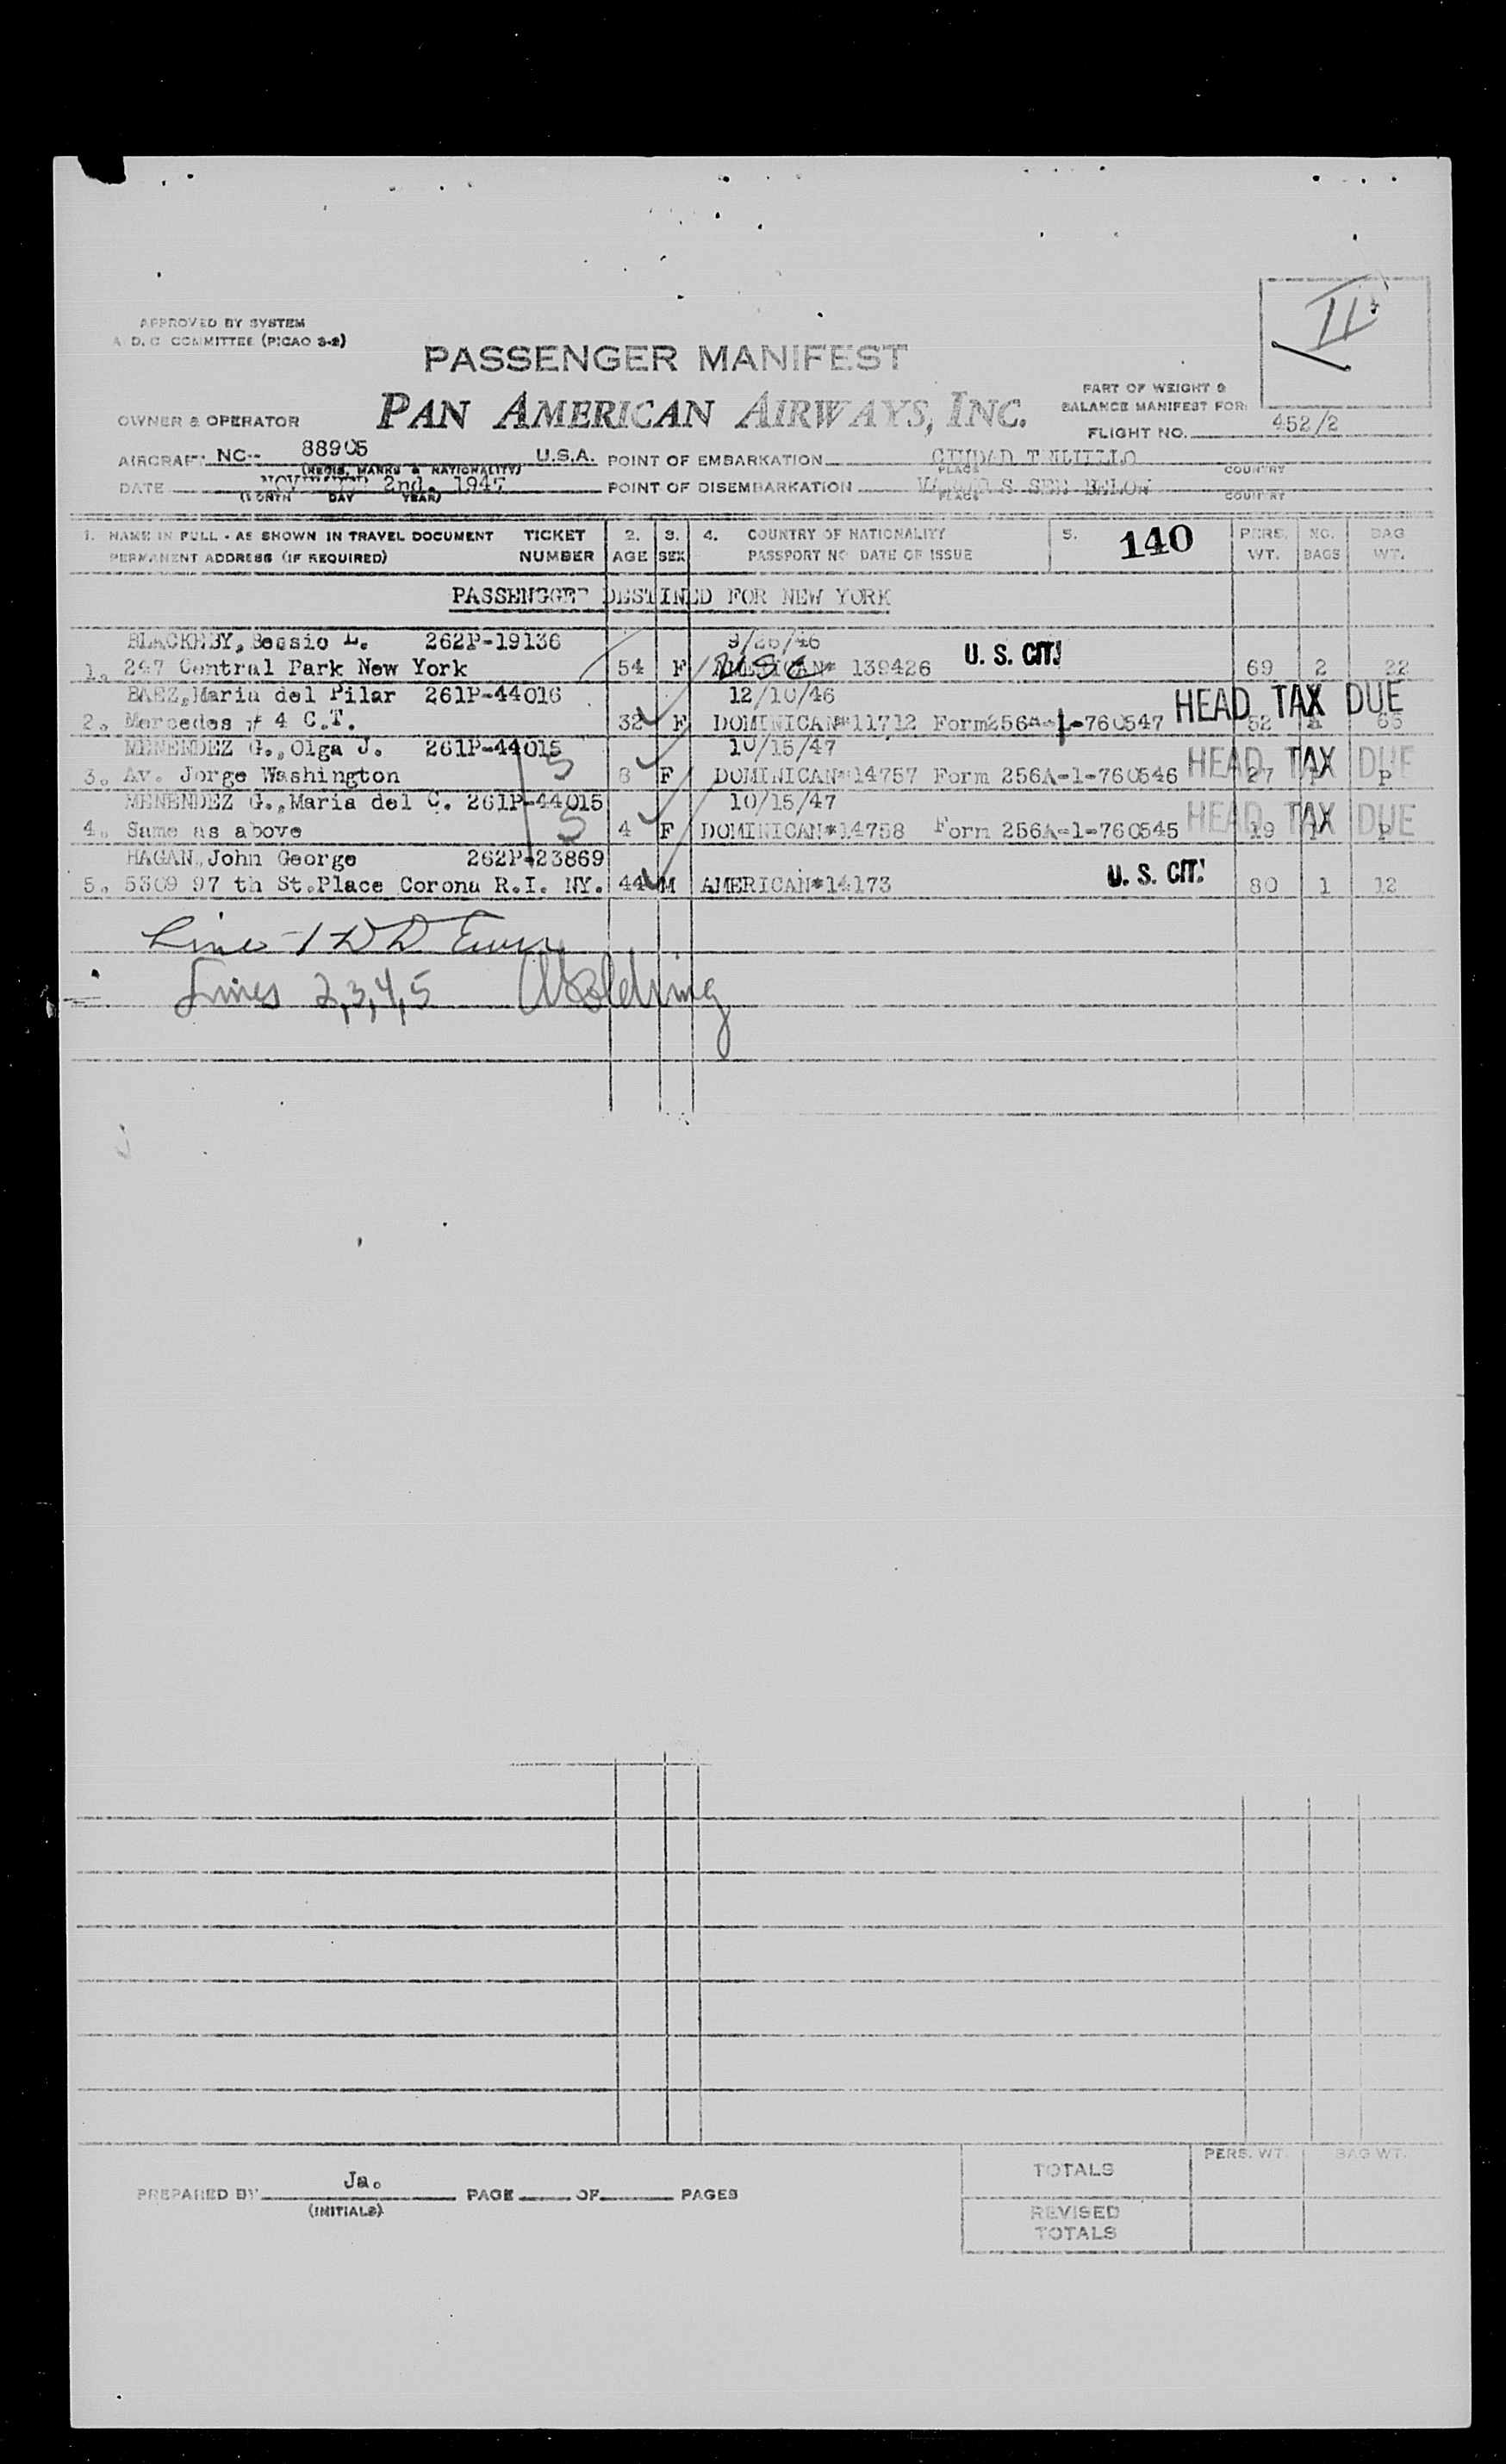 APPROVED BY SYSTEM
A. D. C. COMMITTEE (PICAO 3-2)
II
PASSENGER MANIFEST
PART OF WEIGHT &
BALANCE MANIFEST FOR:
OWNER & OPERATOR PAN AMERICAN AIRWAYS, INC.
FLIGHT NO. 452/2
AIRCRAFT NC-- 88905 U.S.A. POINT OF EMBARKATION CIUDAD TRUJILLO
(REGIS. MARKS & NATIONALITY) PLACE COUNTRY
DATE NOVEMBER 2nd. 1947 POINT OF DISEMBARKATION VARIOUS SEE BELOW
(MONTH DAY YEAR) PLACE COUNTRY
1. NAME IN FULL - AS SHOWN IN TRAVEL DOCUMENT TICKET 2. 3. 4. COUNTRY OF NATIONALITY 5. 140 PERS. NO. BAG
PERMANENT ADDRESS (IF REQUIRED) NUMBER AGE SEX PASSPORT NO DATE OF ISSUE WT. BAGS WT.
PASSENGGER DESTINED FOR NEW YORK
Bessie L. 262P-19136 9/26/46
1. 247 Central Park New York 54 F AMERICAN# 139426 U. S. CIT. 69 2 22
BAEZ, Maria del Pilar 261P-44016 12/10/46
2. Mercedes # 4 C.T. 32 F DOMINICAN#11712 Form256A-1-760547 HEAD TAX DUE 52
MENENDEZ G., Olga J. 261P-44015 10/15/47
3. Av. Jorge Washington 8 F DOMINICAN#14757 Form 256A-1-760546 HEAD TAX DUE 27 P
MENENDEZ G., Maria del C. 261P-44015 10/15/47
4. Same as above 4 F DOMINICAN#14758 Form 256A-1-760545 HEAD TAX DUE 19 P
HAGAN, John George 262P-23869
5. 5309 97 th St. Place Corona R.I. NY. 44 M AMERICAN#14173 U. S. CIT. 80 1 12
Line 1
Lines 2,3,4,5
PREPARED BY Ja. PAGE OF PAGES
(INITIALS)
TOTALS PERS. WT. BAG WT.
REVISED
TOTALS